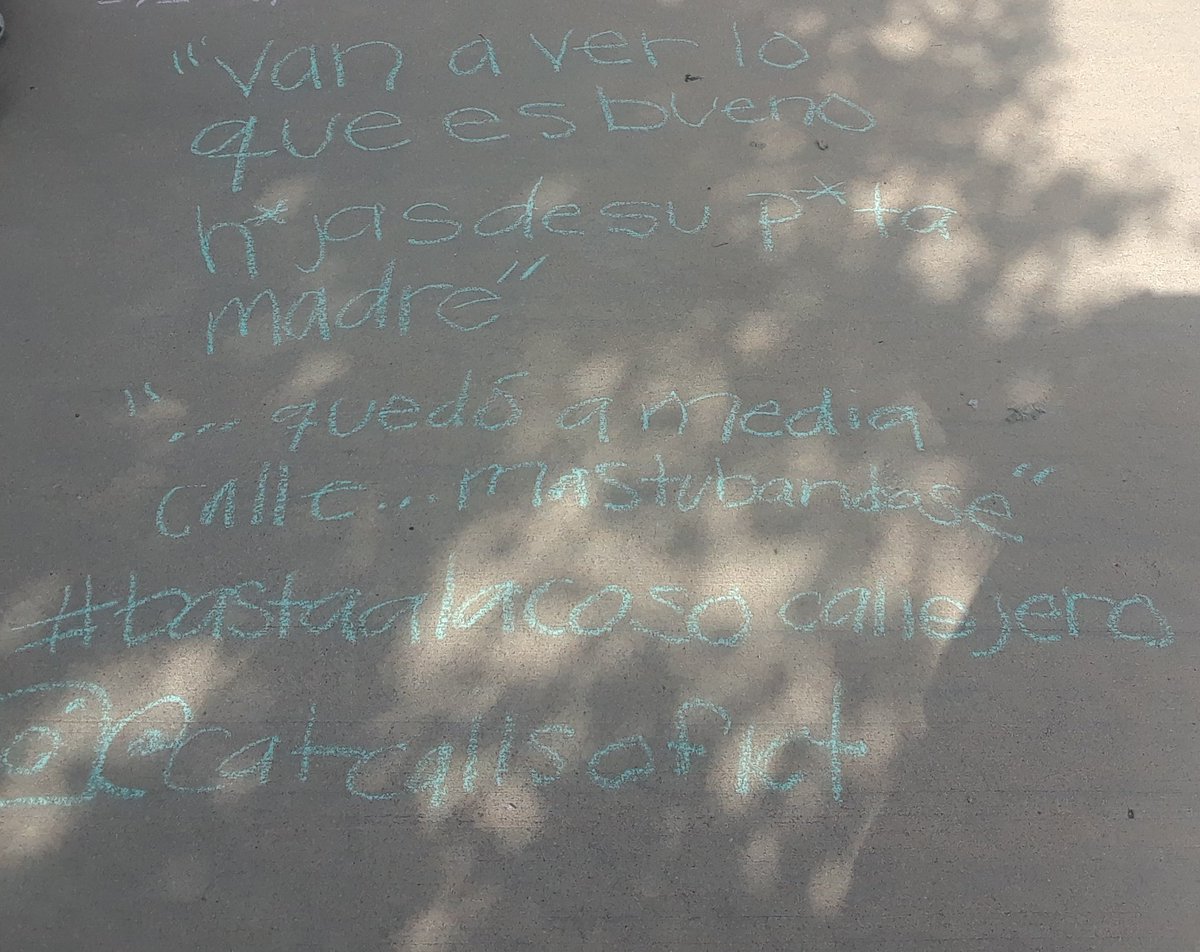 "van a ver lo
que es bueno
h*jas de su p*ta
madre"
"... quedó a media
calle... mastubandose"
#bastaalacoso callejero
@catcallsofict